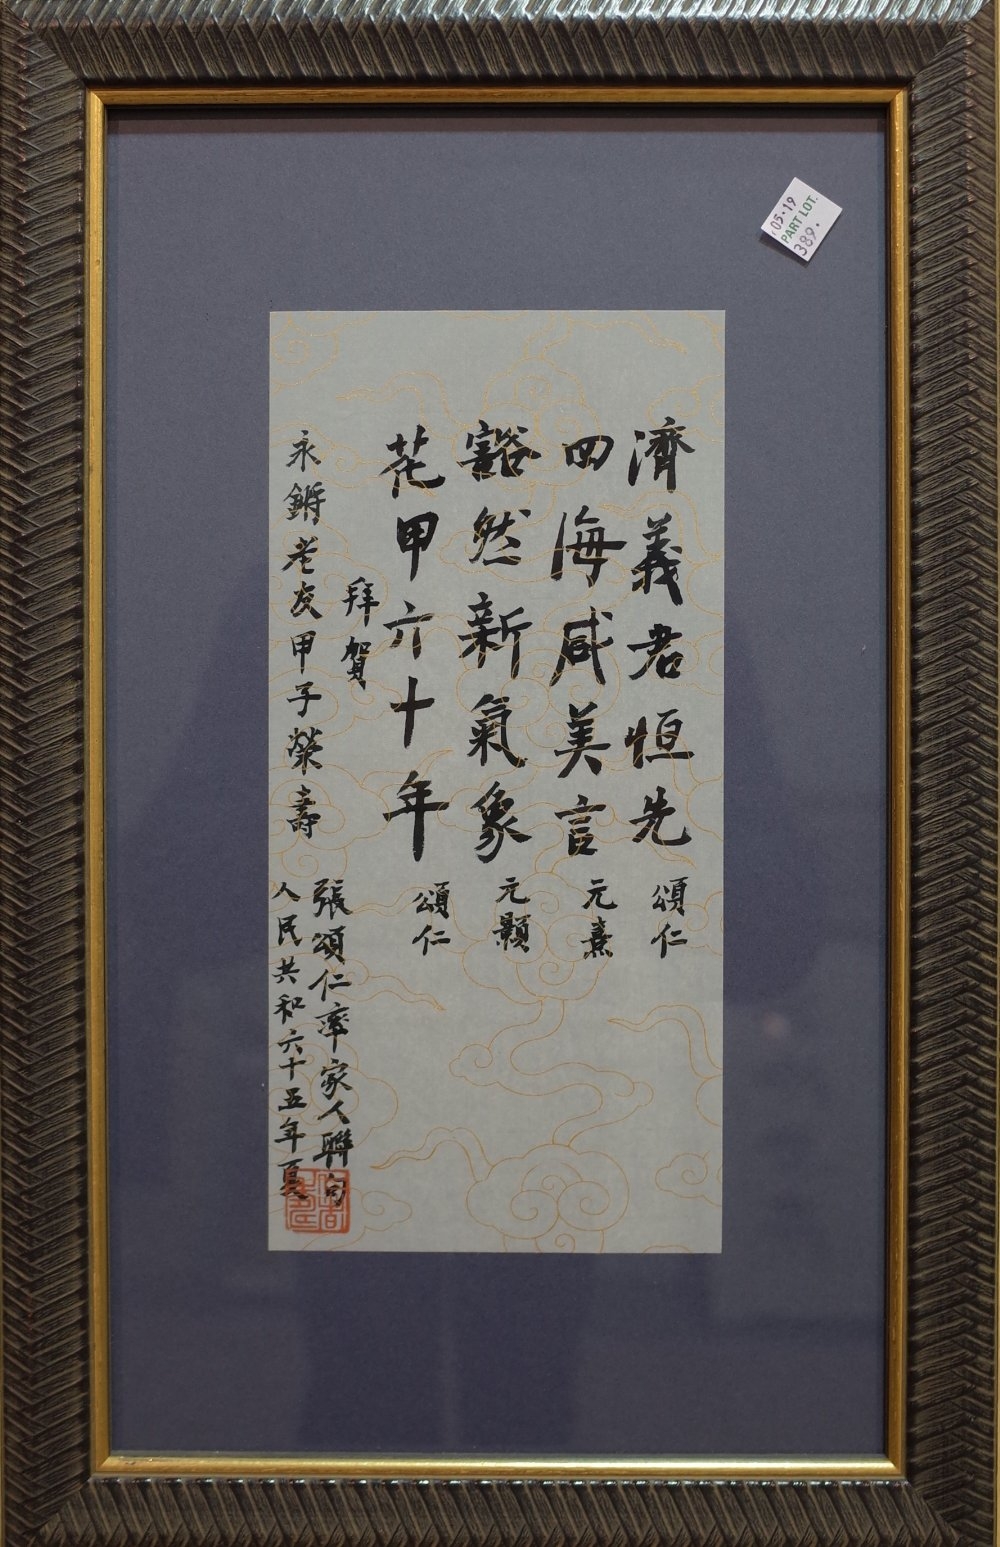 濟義君恒先 頌仁
四海咸美言 元熹
豁然新氣象 元顥
花甲六十年 頌仁
拜賀
永鏘老友甲子榮壽
張頌仁率家人聯句
人民共和六十五年夏
05·19
PART LOT.
389.